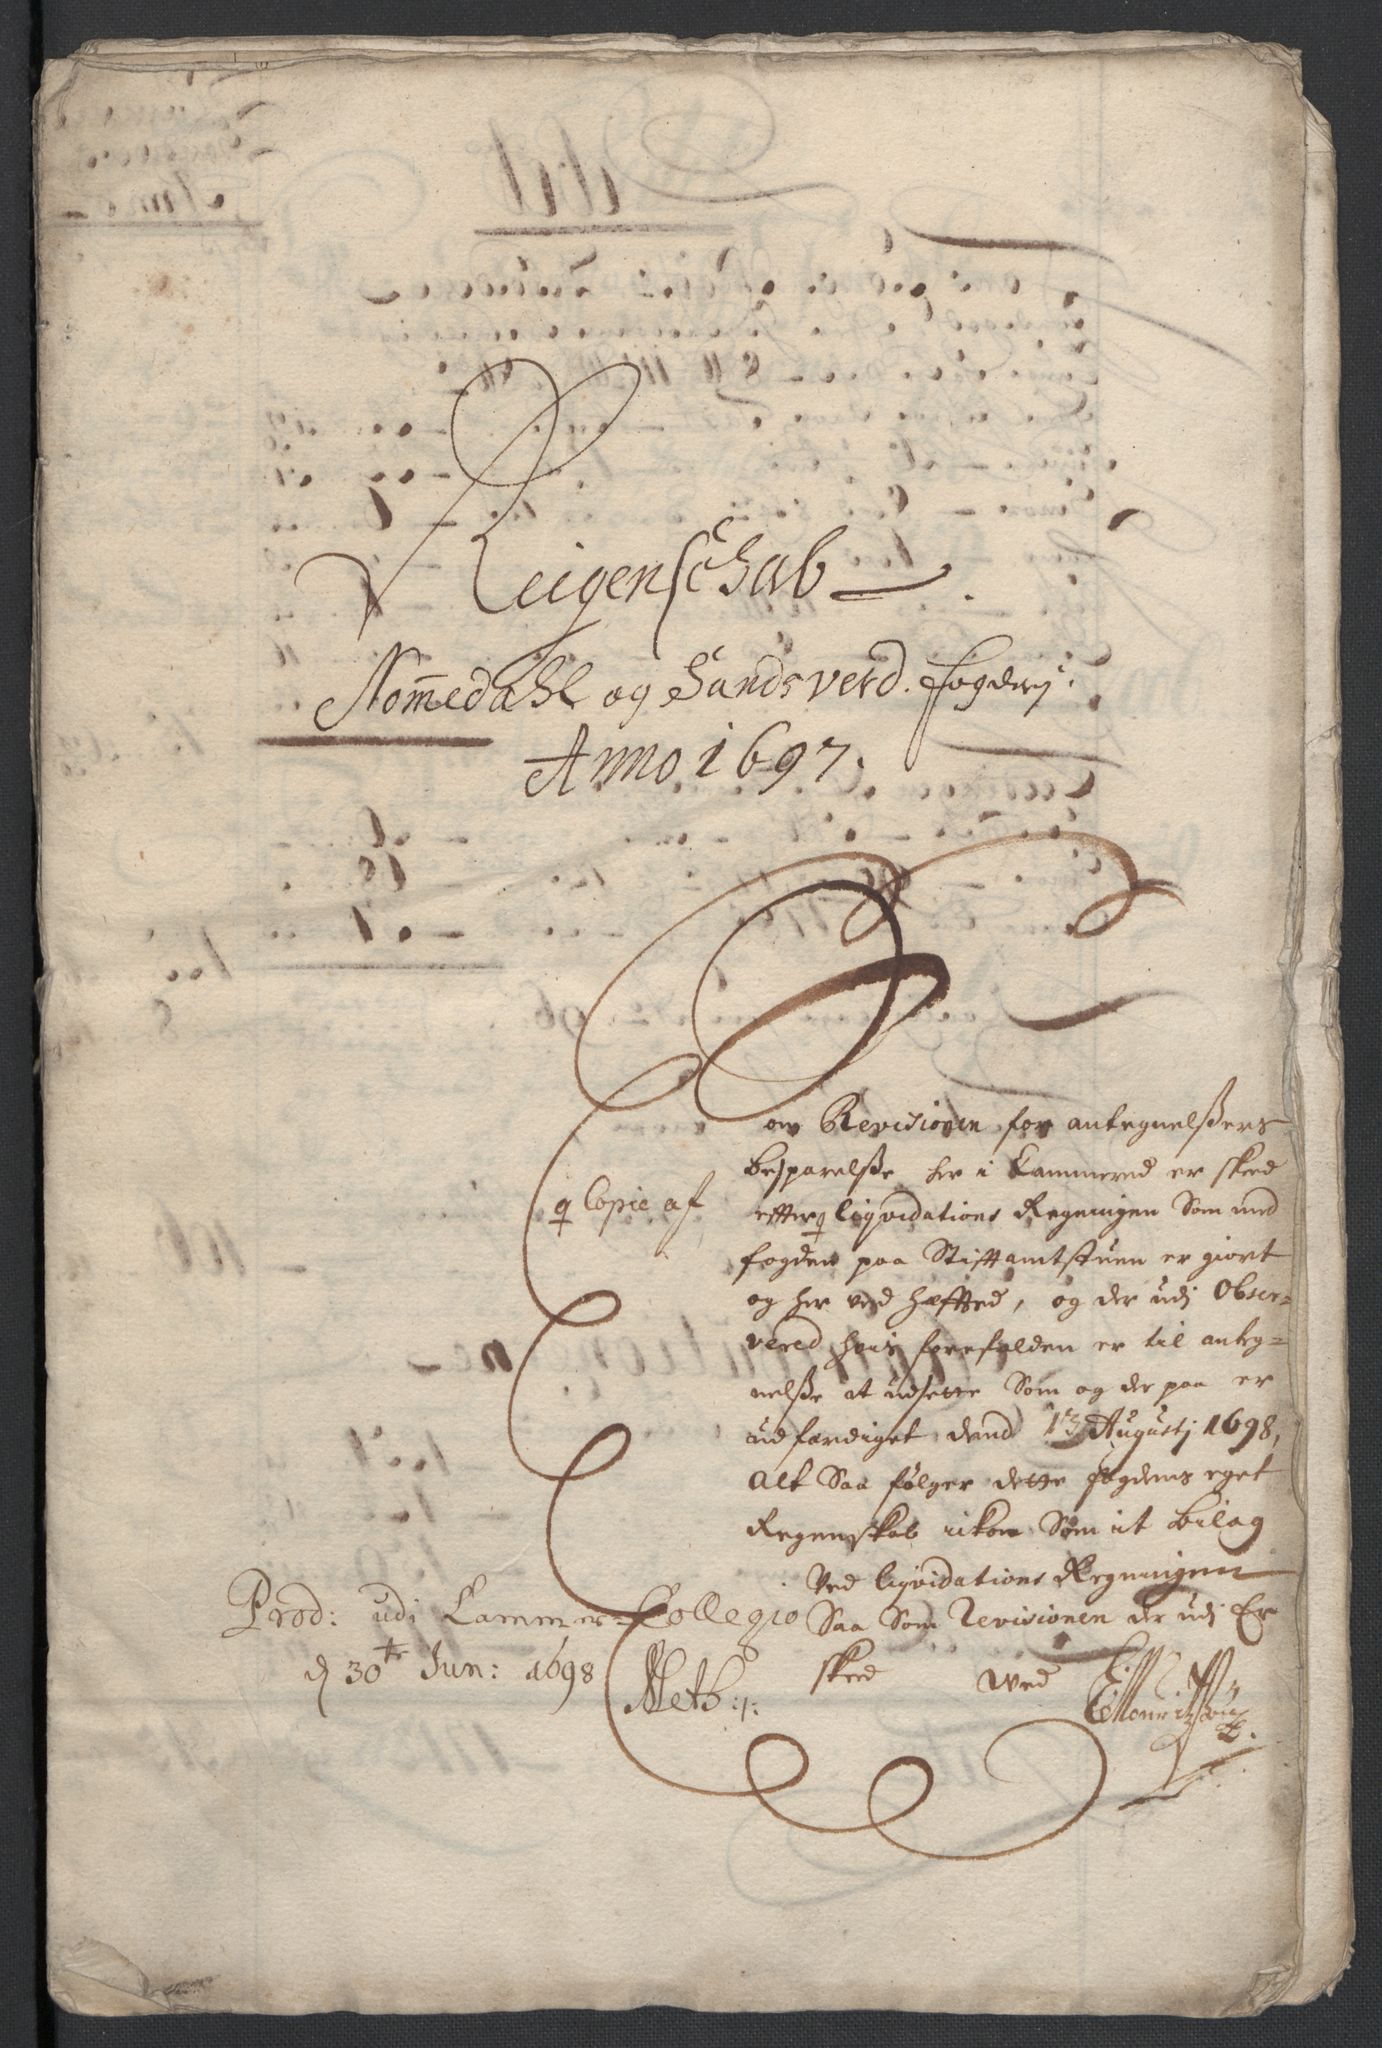 Reigenschab
Nommedahl og Sandsverd. fogderj.
Anno 1697.
Som Revisionen for antegnelßers
besparelße her i Cammered er skeed
efter ꝗ liqvidations Regningen Som med
ꝗ Copie af
fogden paa Stiftamtstuen er giort
og her ved hæfted, og der udj Obser-
vered hvis forefalden er til anteg-
nelße at udsette Som og der paa er
udfærdiget dend 13 Augustj 1698,
Alt Saa følger dette fogdens eget
Regenskab ickon Som it Bilag
Ved liqvidations Regningen
Saa Som Revisionen der udj Er
skeed wed
Prod: udi Cammer-Collegio
d 30te Jun: 1698